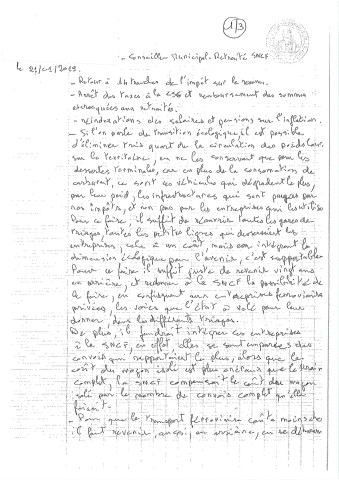 1/3
- Conseiller Municipal - Retraité SNCF
le 21/01/2019.
- Retour à 14 tranches de l'impôt sur le revenu.
- Arrêt des taxes à la CSG et remboursement des sommes
extorquées aux retraités.
- Réindexations des salaires et pensions sur l'inflation.
- Si l'on parle de transition écologique, il est possible
d'éliminer trois quart de la circulation des poids lourds
sur le territoire, en ne les conservant que pour les
dessertes terminales, car en plus de la consommation de
carburant, ce sont ces véhicules qui dégradent le plus,
par leur poid, les infrastructures qui sont payées par
nos impôts, et non pas par les entreprises qui les utilise
Pour ce faire, il suffit de réouvrir toutes les gares de
triages, toutes les petites lignes qui desservaient les
entreprises, cela a un coût, mais en intégrant la
dimension écologique pour l'avenir, c'est supportable.
Pour ce faire il suffit juste de revenir vingt ans
en arrière, et redonner à la SNCF la possibilité de
le faire, en confisquant aux entreprises ferroviaires
privées, les voies que l'état a volé pour leur
donner dans les différents triages.
De plus, il faudrait intégrer ces entreprises
à la SNCF, en effet elles se sont emparées des
convois qui rapportaient le plus, alors que le
coût du wagon isolé est plus onéreux que le train
complet, la SNCF compensait le coût du wagon
isolé par le nombre de convois complet qu'elle
faisait.
- Pour que le transport ferroviaire coûte moins cher
il faut revenir, aussi, en arrière, en se